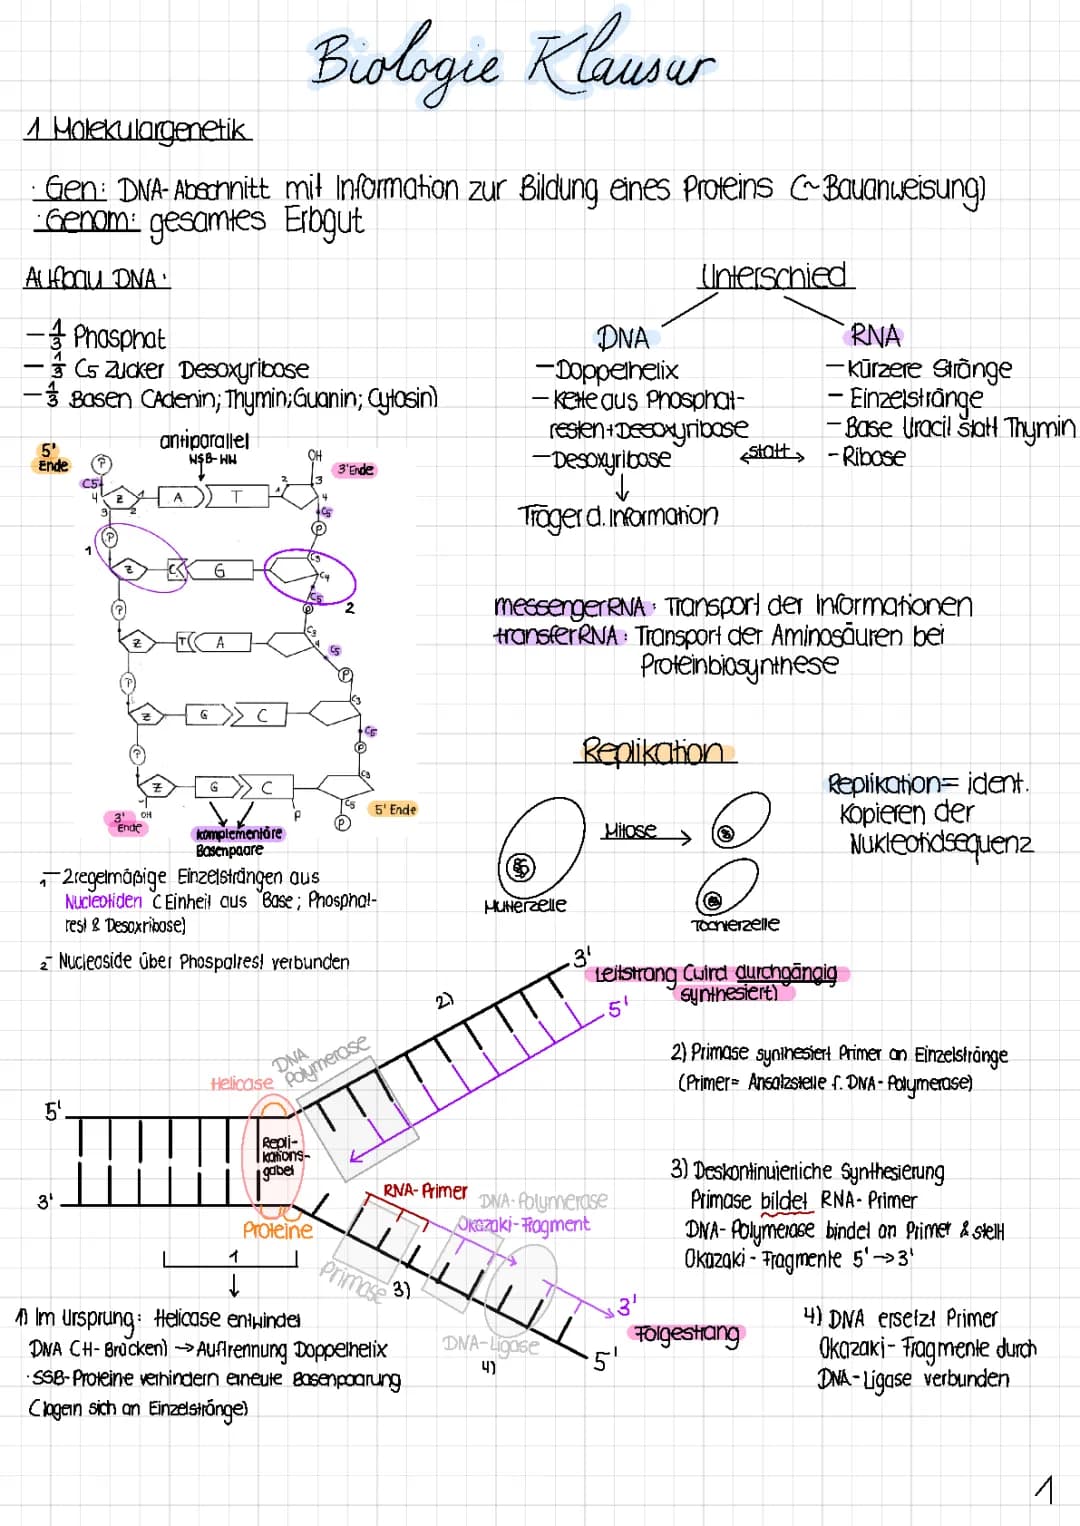 Biologie Klausur
1 Molekulargenetik
· Gen: DNA-Abschnitt mit Information zur Bildung eines Proteins (~Bauanweisung)
· Genom: gesamtes Erbgut
Aufbau DNA:
- 1/3 Phosphat
- 1/3 C5 Zucker Desoxyribose
- 1/3 Basen (Adenin; Thymin; Guanin; Cytosin)
Unterschied
DNA
- Doppelhelix
- Kette aus Phosphat-
resten + Desoxyribose
- Desoxyribose
↓
Träger d. Information
statt
RNA
- Kürzere Stränge
- Einzelstränge
- Base Uracil statt Thymin
- Ribose
antiparallel
WSB-WW
5'
Ende
P
C5
4
3
2
1
Z
A
T
OH
3' Ende
2
1
3
4
C5
P
1
P
Z
C
G
C3
C4
C5
P
2
P
Z
T
A
C3
4
C5
P
P
Z
G
C
C3
C5
P
P
Z
G
C
C3
C5
P
P
5' Ende
3'
Ende
OH
komplementäre
Basenpaare
1- 2 regelmäßige Einzelsträngen aus
Nucleotiden (Einheit aus Base; Phosphat-
rest & Desoxribose)
2- Nucleoside über Phospalrest verbunden
messengerRNA: Transport der Informationen
transferRNA: Transport der Aminosäuren bei
Proteinbiosynthese
Replikation
Mitose
Mutterzelle
Tochterzelle
Replikation= ident.
Kopieren der
Nukleotidsequenz
3'
Leitstrang (wird durchgängig
synthesiert)
5'
2)
DNA
Polymerase
Helicase
5'
3'
Repli-
kations-
gabel
Proteine
1
RNA-Primer
DNA-Polymerase
Okazaki-Fragment
Primase
3)
DNA-Ligase
4)
3'
Folgestrang
5'
2) Primase synthesiert Primer an Einzelstränge
(Primer= Ansatzstelle f. DNA-Polymerase)
3) Deskontinuierliche Synthesierung
Primase bildet RNA-Primer
DNA-Polymerase bindet an Primer & stellt
Okazaki-Fragmente 5'→3'
4) DNA ersetzt Primer
Okazaki-Fragmente durch
DNA-Ligase verbunden
1) Im Ursprung: Helicase entwindet
DNA (H-Brücken) → Auftrennung Doppelhelix
· SSB-Proteine verhindern erneute Basenpaarung
(lagern sich an Einzelstränge)
1